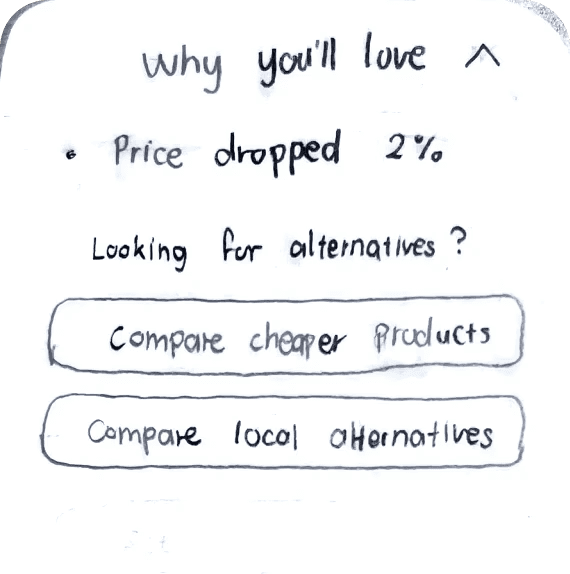 Why you'll love ^
• Price dropped 2%
Looking for alternatives?
Compare cheaper products
Compare local alternatives